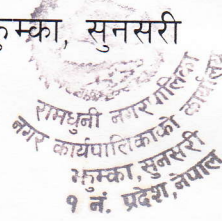 झुम्का, सुनसरी
रामधुनी नगरपालिका
नगर कार्यपालिकाको कार्यालय
झुम्का, सुनसरी
१ नं. प्रदेश, नेपाल